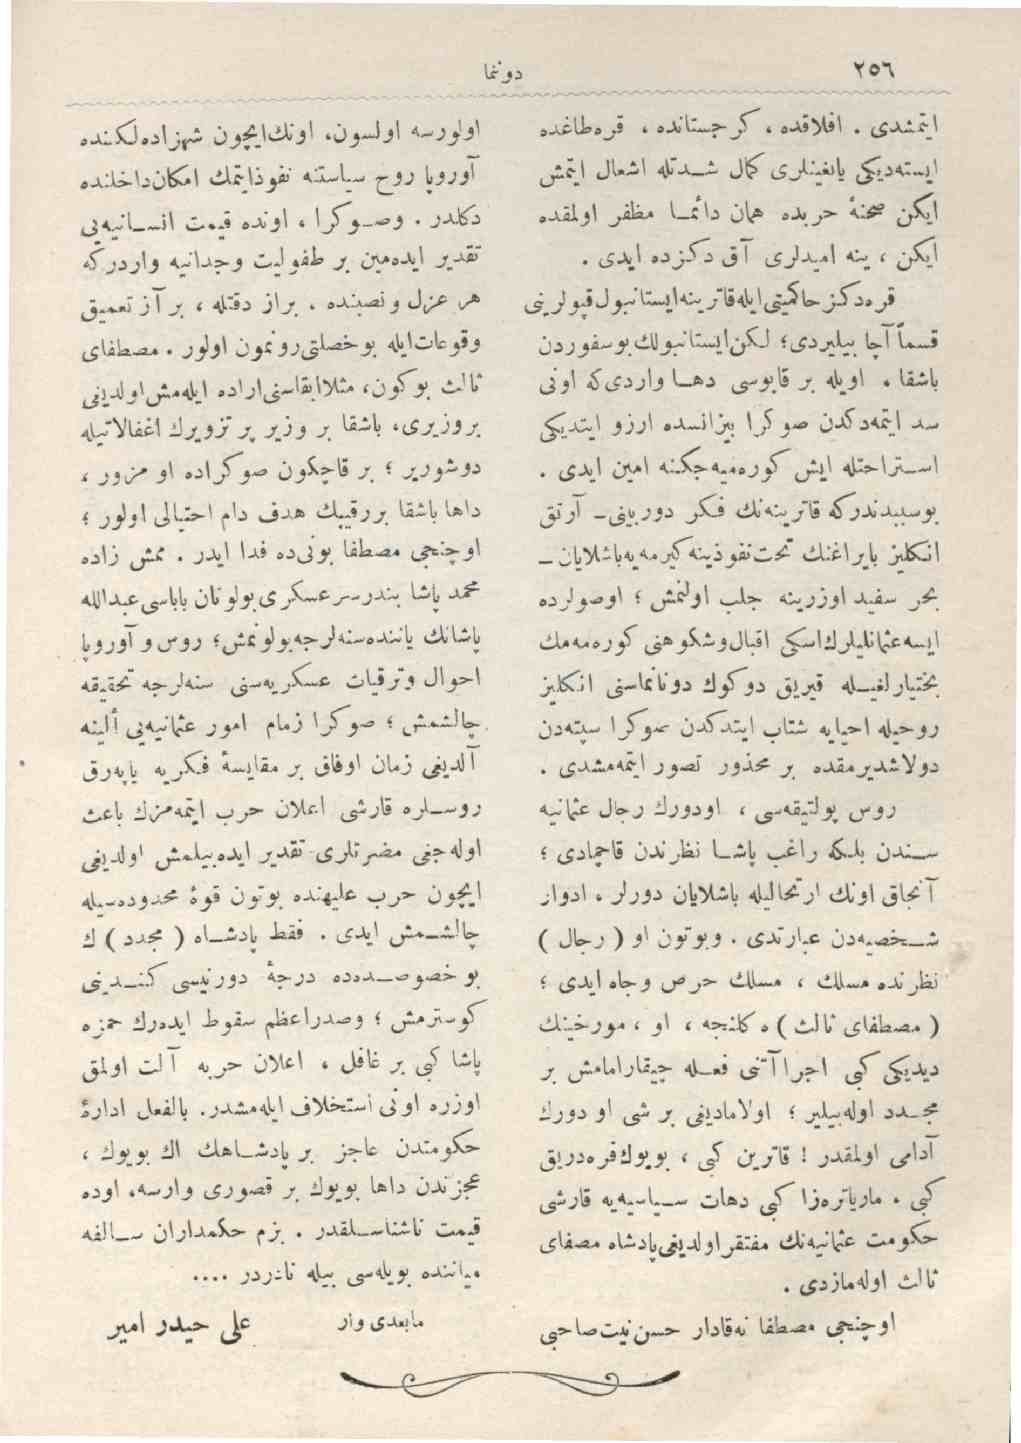 ٢٥٦
دوننما
ایتمشدی . افلاقده ، کرجستانده ، قره‌طاغده
ایسته‌دیکی یانغینلری کمال شـدتله اشعال ایتمش
ایکن صحنۀ حربده همان دائمـا مظفر اولمقده
ایکن ، ینه امیدلری آق دکزده ایدی .
قره‌دکز حاکمیتی ایله قاترینه ایستانبول قپولرینی
قسماً آچا بیلیردی ؛ لکن ایستانبولك بوسفوردن
باشقا ، اویله بر قاپوسی دهـا واردی که اونی
سد ایتمه‌دکدن صوکرا بیزانسده ارزو ایتدیکی
اسـتراحتله ایش کوره‌میه‌جکنه امین ایدی .
بوسببدندرکه قاترینه‌نك فـکر دوربینی ــ آرتق
انـکلیز بایراغنك تحت نفوذینه کیرمه‌یه باشلایان ــ
بحر سفید اوزرینه جلب اولنمش ؛ اوصولرده
ایسه عثمانلیلرك اسکی اقبال وشکوهنی کوره‌مه‌مك
بختیارلغیـله قیریق دوکوك دونانماسنی انکلیز
روحیله احیایه شتاب ایتدکدن صوکرا سپته‌دن
دولاشدیرمقده بر محذور تصور ایتمه‌مشدی .
روس پولتیقه‌سی ، اودورك رجال عثمانیه
سـندن بلکه راغب پاشـا نظرندن قاچمادی ؛
آنجاق اونك ارتحالیله باشلایان دورلر ، ادوار
شـخصیه‌دن عبارتدی . وبوتون او ( رجال )
نظرنده مسلك ، مسلك حرص وجاه ایدی ؛
( مصطفای ثالث ) ه کلنجه ، او ، مورخینك
دیدیکی کبی اجرا آتنی فعـله چیقارامامش بر
مجـدد اوله‌بیلیر ؛ اولامادیغی بر شی او دورك
آدامی اولمقدر ! قاترین کبی ، بویوك فره‌دریق
کبی ، ماریاتره‌زا کبی دهات سـیاسیه‌یه قارشی
حکومت عثمانیه‌نك مفتقر اولدیغی پادشاه مصفای
ثالث اوله‌مازدی .
اوچنجی مصطفا نه‌قادار حسن نیت صاحبی
اولورسه اولسون ، اونك ایچون شهزاده‌لکـنده
آوروپا روح سیاستنه نفوذ ایتمك امکان داخلنده
دکلدر . وصـوکرا ، اونده قیمت انسـانیه‌یی
تقدیر ایده‌مین بر طفولیت وجدانیه واردرکه
هر عزل ونصبنده . براز دقتله ، بر آز تعمیق
وقوعات ایله بو خصلتی رونمون اولور . مصطفای
ثالث بوکون ، مثلا ابقاسنی اراده ایله‌مش اولدیغی
بر وزیری ، باشقا بر وزیر پر تزویرك اغفالاتیله
دوشوریر ؛ بر قاچکون صوکراده او مزور ،
داها باشقا بررقیبك هدف دام احتیالی اولور ؛
اوچنجی مصطفا بونی‌ده فدا ایدر . ممش زاده
محمد پاشا بندر سرعسکری بولونان باباسی عبدالله
پاشانك یاننده سنه‌لرجه بولونمش ؛ روس و آوروپا
احوال وترقیات عسکریه‌سنی سنه‌لرجه تحقیقه
چالشمش ؛ صوکرا زمام امور عثمانیه‌یی ألینه
آلدیغی زمان اوفاق بر مقایسۀ فـکریه یاپه‌رق
روسـلره قارشی اعلان حرب ایتمه‌مزك باعث
اوله‌جغی مضرتلری تقدیر ایده‌بیلمش اولدیغی
ایچون حرب علیهنده بوتون قوۀ محدوده‌سیله
چالشـمش ایدی . فقط پادشـاه ( مجدد ) ك
بو خصوصـده‌ده درجۀ دوربینیسی کنـدینی
کوسترمش ؛ وصدراعظم سقوط ایده‌رك حمزه
پاشا کبی بر غافل ، اعلان حربه آلت اولمق
اوزره اونی استخلاف ایله‌مشدر . بالفعل ادارۀ
حکومتدن عاجز بر پادشـاهك اك بویوك ،
عجزندن داها بویوك بر قصوری وارسه ، اوده
قیمت ناشناسـلقدر . بزم حکمداران سـالفه
میاننده بویله‌سی بیله نادردر ....
مابعدی وار
علی حیدر امیر